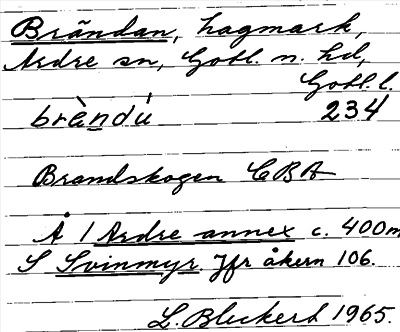 Brändan, hagmark,
Ardre sn, Gotl. n. hd,
Gotl. l.
bràndú 234
Brandskogen CBA
Å / Ardre annex c. 400m
S Svinmyr. Jfr åkern 106.
L. Bleckert 1965.